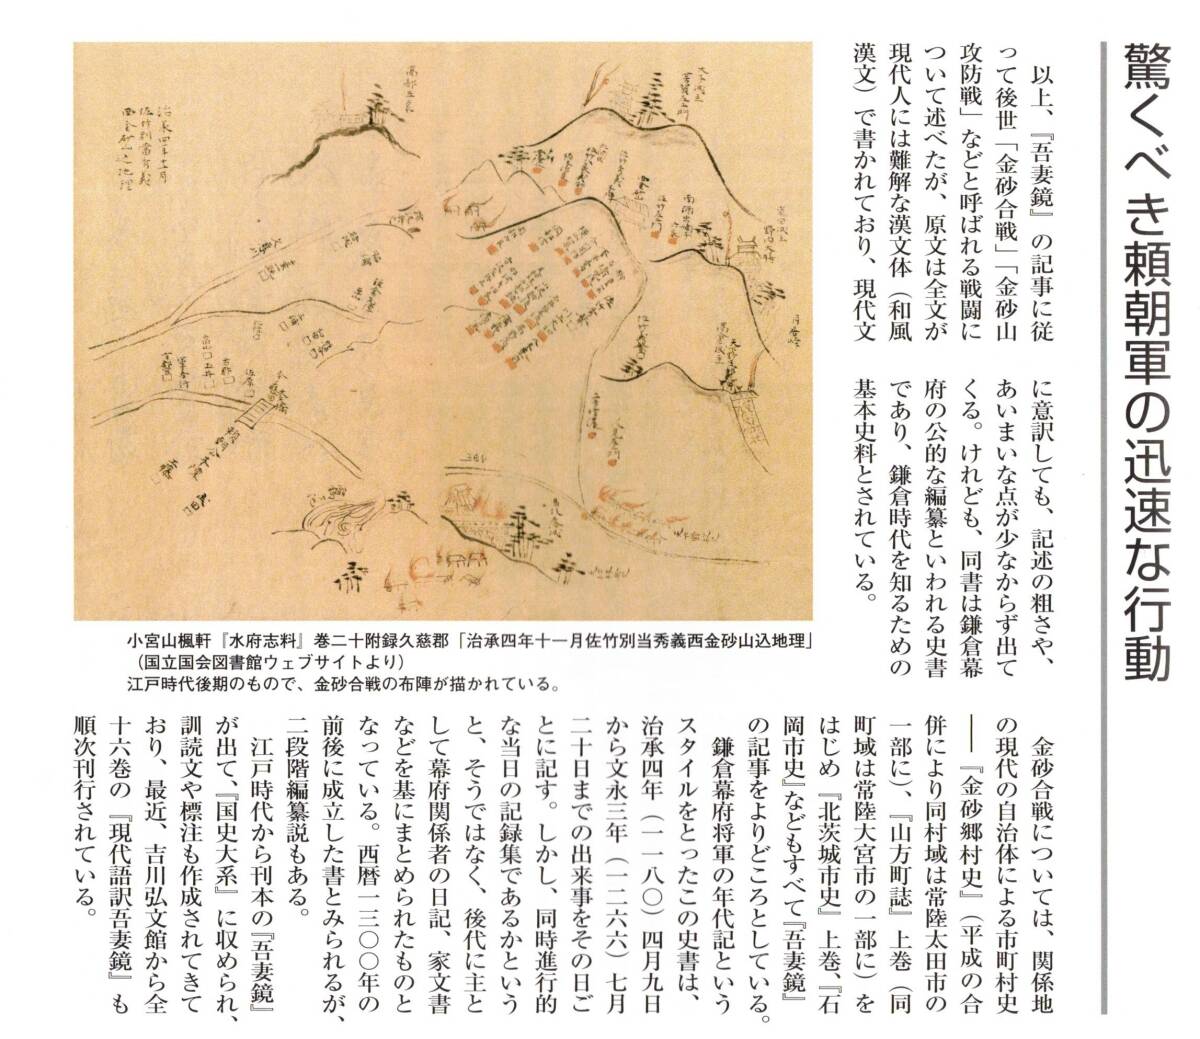 驚くべき頼朝軍の迅速な行動
以上、『吾妻鏡』の記事に従
って後世「金砂合戦」「金砂山
攻防戦」などと呼ばれる戦闘に
ついて述べたが、原文は全文が
現代人には難解な漢文体（和風
漢文）で書かれており、現代文
に意訳しても、記述の粗さや、
あいまいな点が少なからず出て
くる。けれども、同書は鎌倉幕
府の公的な編纂といわれる史書
であり、鎌倉時代を知るための
基本史料とされている。
治承四年十一月
佐竹別当秀義
西金砂山込地理
小宮山楓軒『水府志料』巻二十附録久慈郡「治承四年十一月佐竹別当秀義西金砂山込地理」
（国立国会図書館ウェブサイトより）
江戸時代後期のもので、金砂合戦の布陣が描かれている。
金砂合戦については、関係地
の現代の自治体による市町村史
――『金砂郷村史』（平成の合
併により同村域は常陸太田市の
一部に）、『山方町誌』上巻（同
町域は常陸大宮市の一部に）を
はじめ『北茨城市史』上巻、『石
岡市史』などもすべて『吾妻鏡』
の記事をよりどころとしている。
鎌倉幕府将軍の年代記という
スタイルをとったこの史書は、
治承四年（一一八〇）四月九日
から文永三年（一二六六）七月
二十日までの出来事をその日ご
とに記す。しかし、同時進行的
な当日の記録集であるかという
と、そうではなく、後代に主と
して幕府関係者の日記、家文書
などを基にまとめられたものと
なっている。西暦一三〇〇年の
前後に成立した書とみられるが、
二段階編纂説もある。
江戸時代から刊本の『吾妻鏡』
が出て、『国史大系』に収められ、
訓読文や標注も作成されてきて
おり、最近、吉川弘文館から全
十六巻の『現代語訳吾妻鏡』も
順次刊行されている。